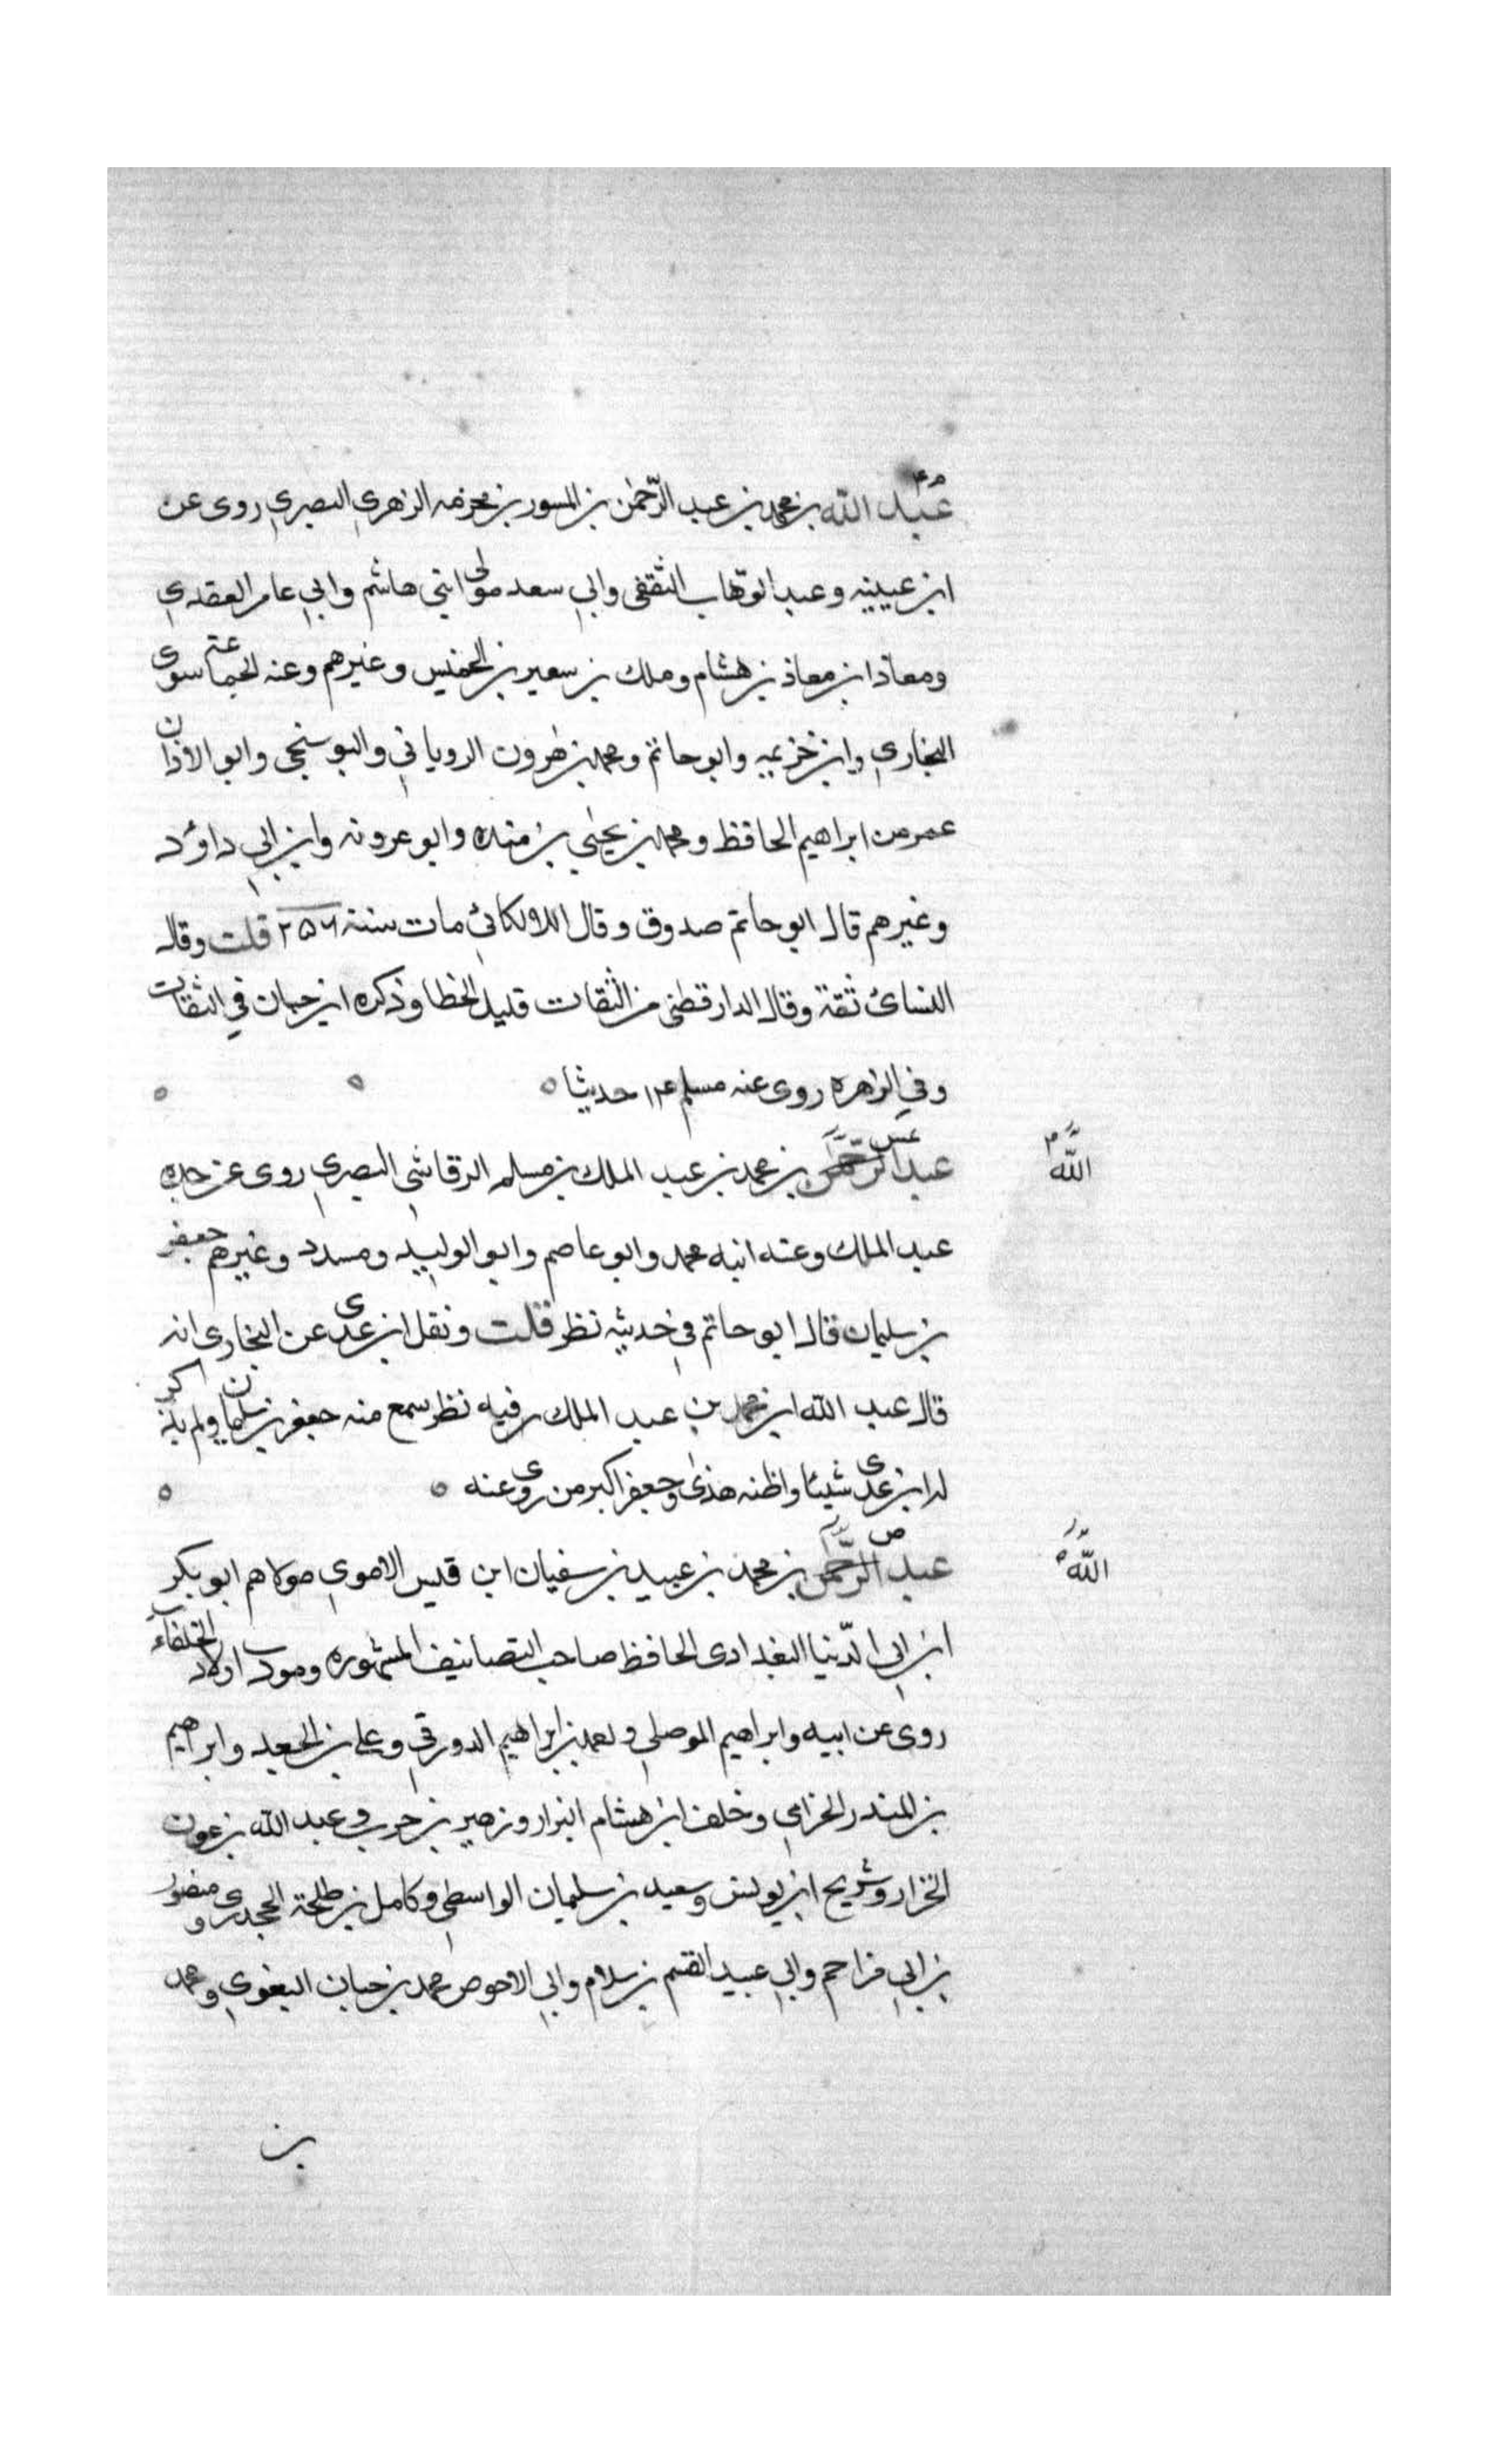 عبد الله بن محمد بن عبد الرّحمٰن بن المسور بن مخرمه الزهري البصري روى عن
ابن عيينه وعبد الوهّاب الثقفى وابي سعد مولى ابني هاشم وابي عامر العقدي
ومعاذ ابن معاذ بن هشام وملك بن سعير بن الخمس وغيرهم وعنه الجماعة سوى
البخاري وابن خزيمه وابو حاتم ومحمد بن هٰرون الروياني والبوسنجى وابو الاذان
عمر من ابراهيم الحافظ ومحمد بن يحيٰي بن منده وابو عروبه وابن ابي داوُد
وغيرهم قال ابو حاتم صدوق وقال اللالكائي مات سنة ٢٥٦ قلت وقال
النسائ ثقة وقال الدارقطنى من الثقات قليل الخطا وذكره ابن حبان في الثقات
وفي الزهره روى عنه مسلم ١٤ حديثا ه ه ه
الله
عبد الرّحمٰن بن محمد بن عبد الملك بن مسلم الرقاشي البصري روى عن جده
عبد الملك وعنه ابنه محمد وابو عاصم وابو الوليد ومسدد وغيرهم جعفر
بن سليمان قال ابو حاتم في حديثه نظر قلت ونقل ابن عدى عن البخارى انه
قال عبد الله ابن محمد بن عبد الملك فيه نظر سمع منه جعفر بن سليمان ولم يذكر
له ابن عدى شيئا واظنه هذى وجعفر اكبر من روى عنه ه ه
اللّه
عبد الرّحمٰن بن محمد بن عبيد بن سفيان ابن قيس الاموي مولاهم ابو بكر
ابن ابي الدّنيا البغدادى الحافظ صاحب التصانيف المشهوره ومودب اولاد الخلفآء
روى عن ابيه وابراهيم الموصلي واحمد بن ابراهيم الدورقي وعلي بن الجعد وابراهيم
بن المنذر الحزامي وخلف ابن هشام البزار وزهير بن حرب وعبد الله بن عون
الخراز وشريح ابن يونس وسعيد بن سليمان الواسطي وكامل بن طلحة الجحدرى ومنصور
بن ابي مزاحم وابي عبيد القسم بن سلام وابي الاحوص محمد بن حبان البغوي ومحمد
بن